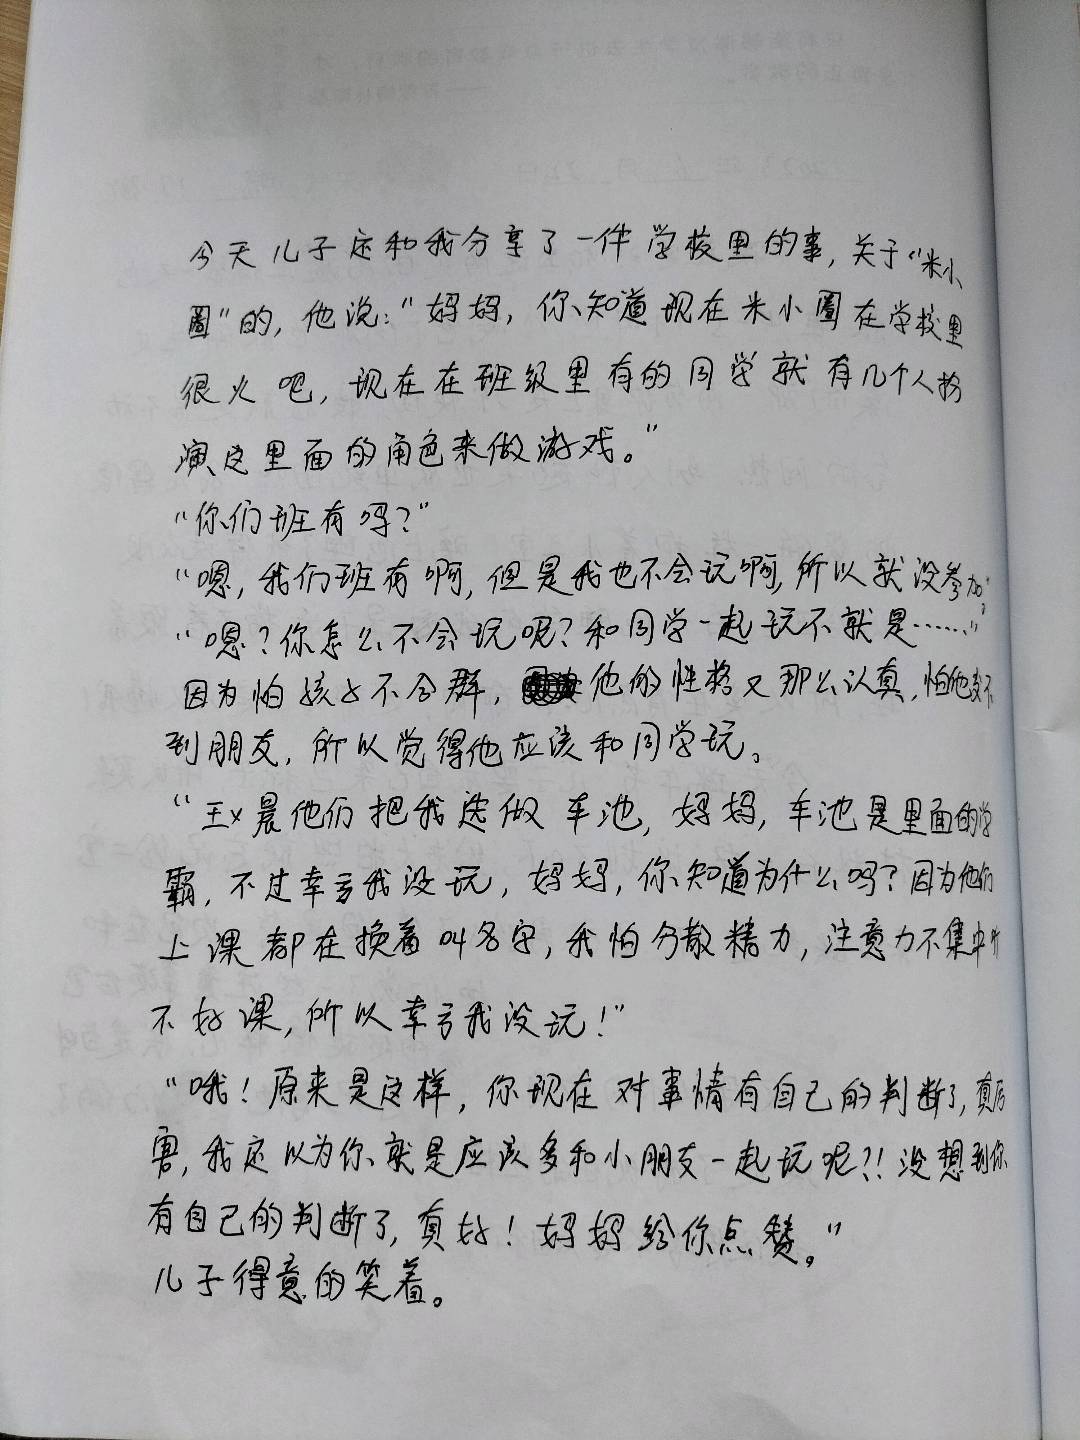 今天儿子还和我分享了一件学校里的事，关于“米小
圈”的，他说：“妈妈，你知道现在米小圈在学校里
很火吧，现在在班级里有的同学就有几个人扮
演这里面的角色来做游戏。”
“你们班有吗？”
“嗯，我们班有啊，但是我也不会玩啊，所以就没参加。”
“嗯？你怎么不会玩呢？和同学一起玩不就是……”
因为怕孩子不合群，他的性格又那么认真，怕他交不
到朋友，所以觉得他应该和同学玩。
“王x晨他们把我选做车池，妈妈，车池是里面的学
霸，不过幸亏我没玩，妈妈，你知道为什么吗？因为他们
上课都在换着叫名字，我怕分散精力，注意力不集中听
不好课，所以幸亏我没玩！”
“哦！原来是这样，你现在对事情有自己的判断了，真厉
害，我还以为你就是应该多和小朋友一起玩呢？！没想到你
有自己的判断了，真好！妈妈给你点赞。”
儿子得意的笑着。